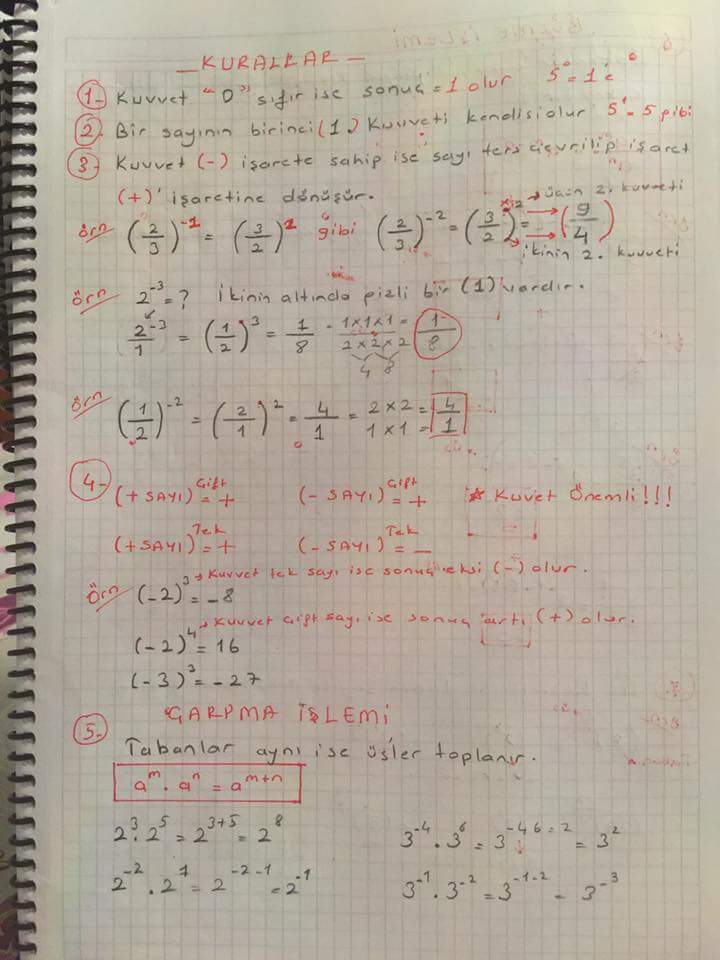 — KURALLAR —
1- Kuvvet "0" sıfır ise sonuç = 1 olur 5⁰ = 1
2. Bir sayının birinci (1.) Kuvveti kendisi olur 5¹ = 5 gibi
3- Kuvvet (-) işarete sahip ise sayı ters çevrilip işaret
(+)' işaretine dönüşür.
→ üçün 2. kuvveti
örn (2/3)⁻¹ = (3/2)¹ gibi (2/3)⁻² = (3/2)² = (9/4)
ikinin 2. kuvveti
örn 2⁻³ = ? ikinin altında gizli bir (1) vardır.
2⁻³/1 = (1/2)³ = 1/8 = 1x1x1/2x2x2 = 1/8
4 8
örn (1/2)⁻² = (2/1)² = 4/1 = 2x2/1x1 = 4/1
4- (+SAYI)^Çift = + (-SAYI)^Çift = + ★ Kuvet Önemli!!!
(+SAYI)^Tek = + (-SAYI)^Tek = -
Örn (-2)³ = -8 → Kuvvet tek sayı ise sonuç eksi (-) olur.
(-2)⁴ = 16 → Kuvvet çift sayı ise sonuç artı (+) olur.
(-3)³ = -27
5. ÇARPMA İŞLEMİ
Tabanlar aynı ise üsler toplanır.
aᵐ · aⁿ = aᵐ⁺ⁿ
2³ · 2⁵ = 2³⁺⁵ = 2⁸ 3⁻⁴ · 3⁶ = 3^(-4 6 = 2) = 3²
2⁻² · 2¹ = 2^(-2-1) = 2⁻¹ 3⁻¹ · 3⁻² = 3⁻¹⁻² = 3⁻³